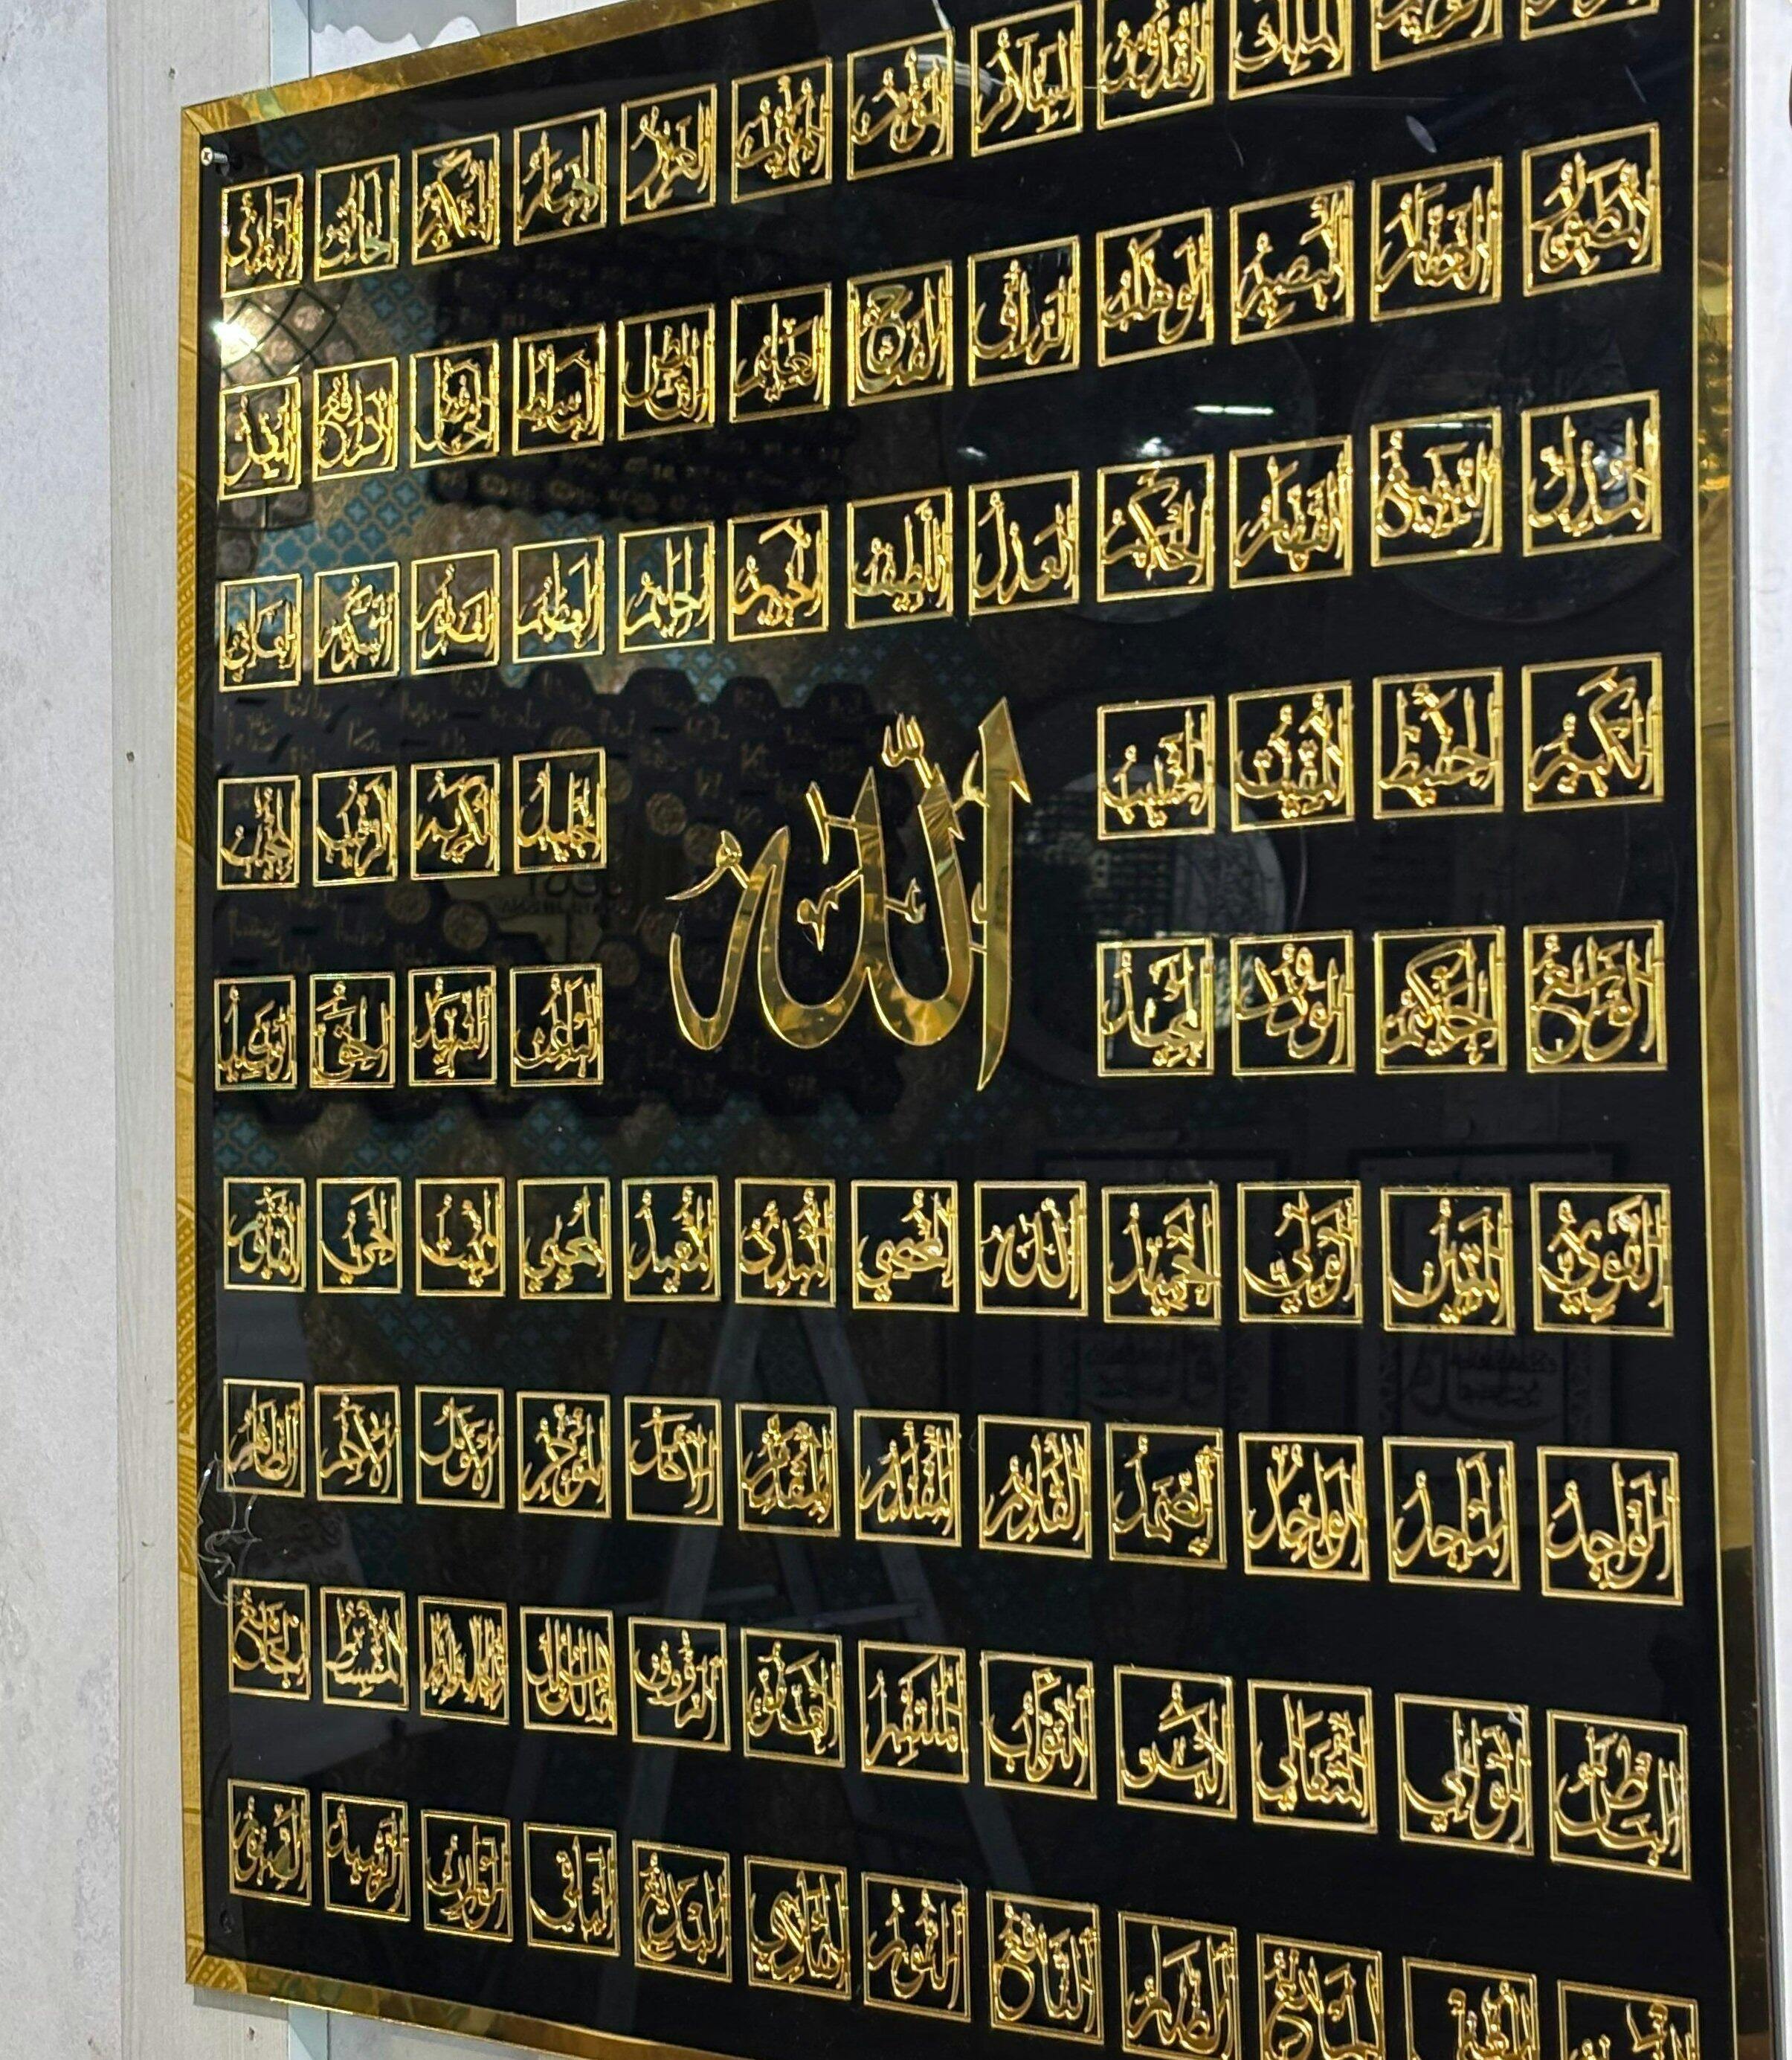 الملك القدوس السلام المؤمن المهيمن العزيز الجبار المتكبر الخالق البارئ
الغفار البصير الوهاب الرزاق الفتاح العليم القابض الباسط
القهار الحكم العدل اللطيف الخبير الحليم العظيم الغفور الشكور العلي
الكبير الحفيظ المقيت الحسيب الجليل الكريم الرقيب المجيب
الله
الواسع الحكيم الودود المجيد الباعث الشهيد الحق الوكيل
القوي المتين الولي الحميد الله المحصي المبدئ المعيد المحيي المميت الحي القيوم
الواجد الماجد الواحد الصمد القادر المقتدر المقدم المؤخر الأول الآخر الظاهر
الباطن الوالي المتعالي البر التواب المنتقم العفو الرؤوف مالك الملك المقسط الجامع
المانع الضار النافع النور الهادي البديع الباقي الوارث الرشيد الصبور